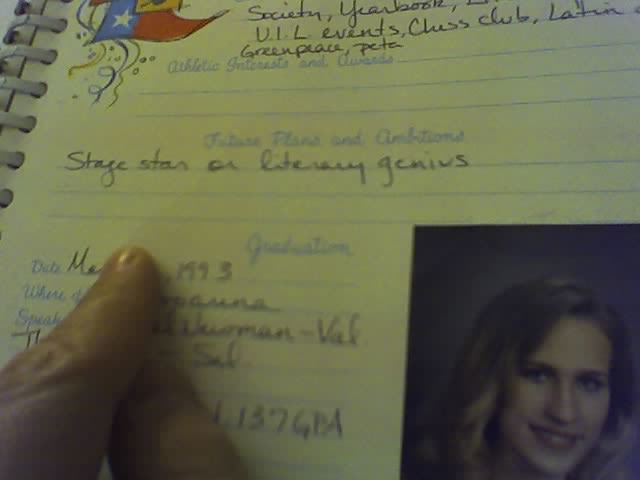 Society, Yearbook,
U.I.L events, Chess club, Latin
Greenpeace, peta
Athletic Interests and Awards
Future Plans and Ambitions
Stage star or literary genius
Graduation
Date 1993
Where
Newman-Val
Sal
137 GPA